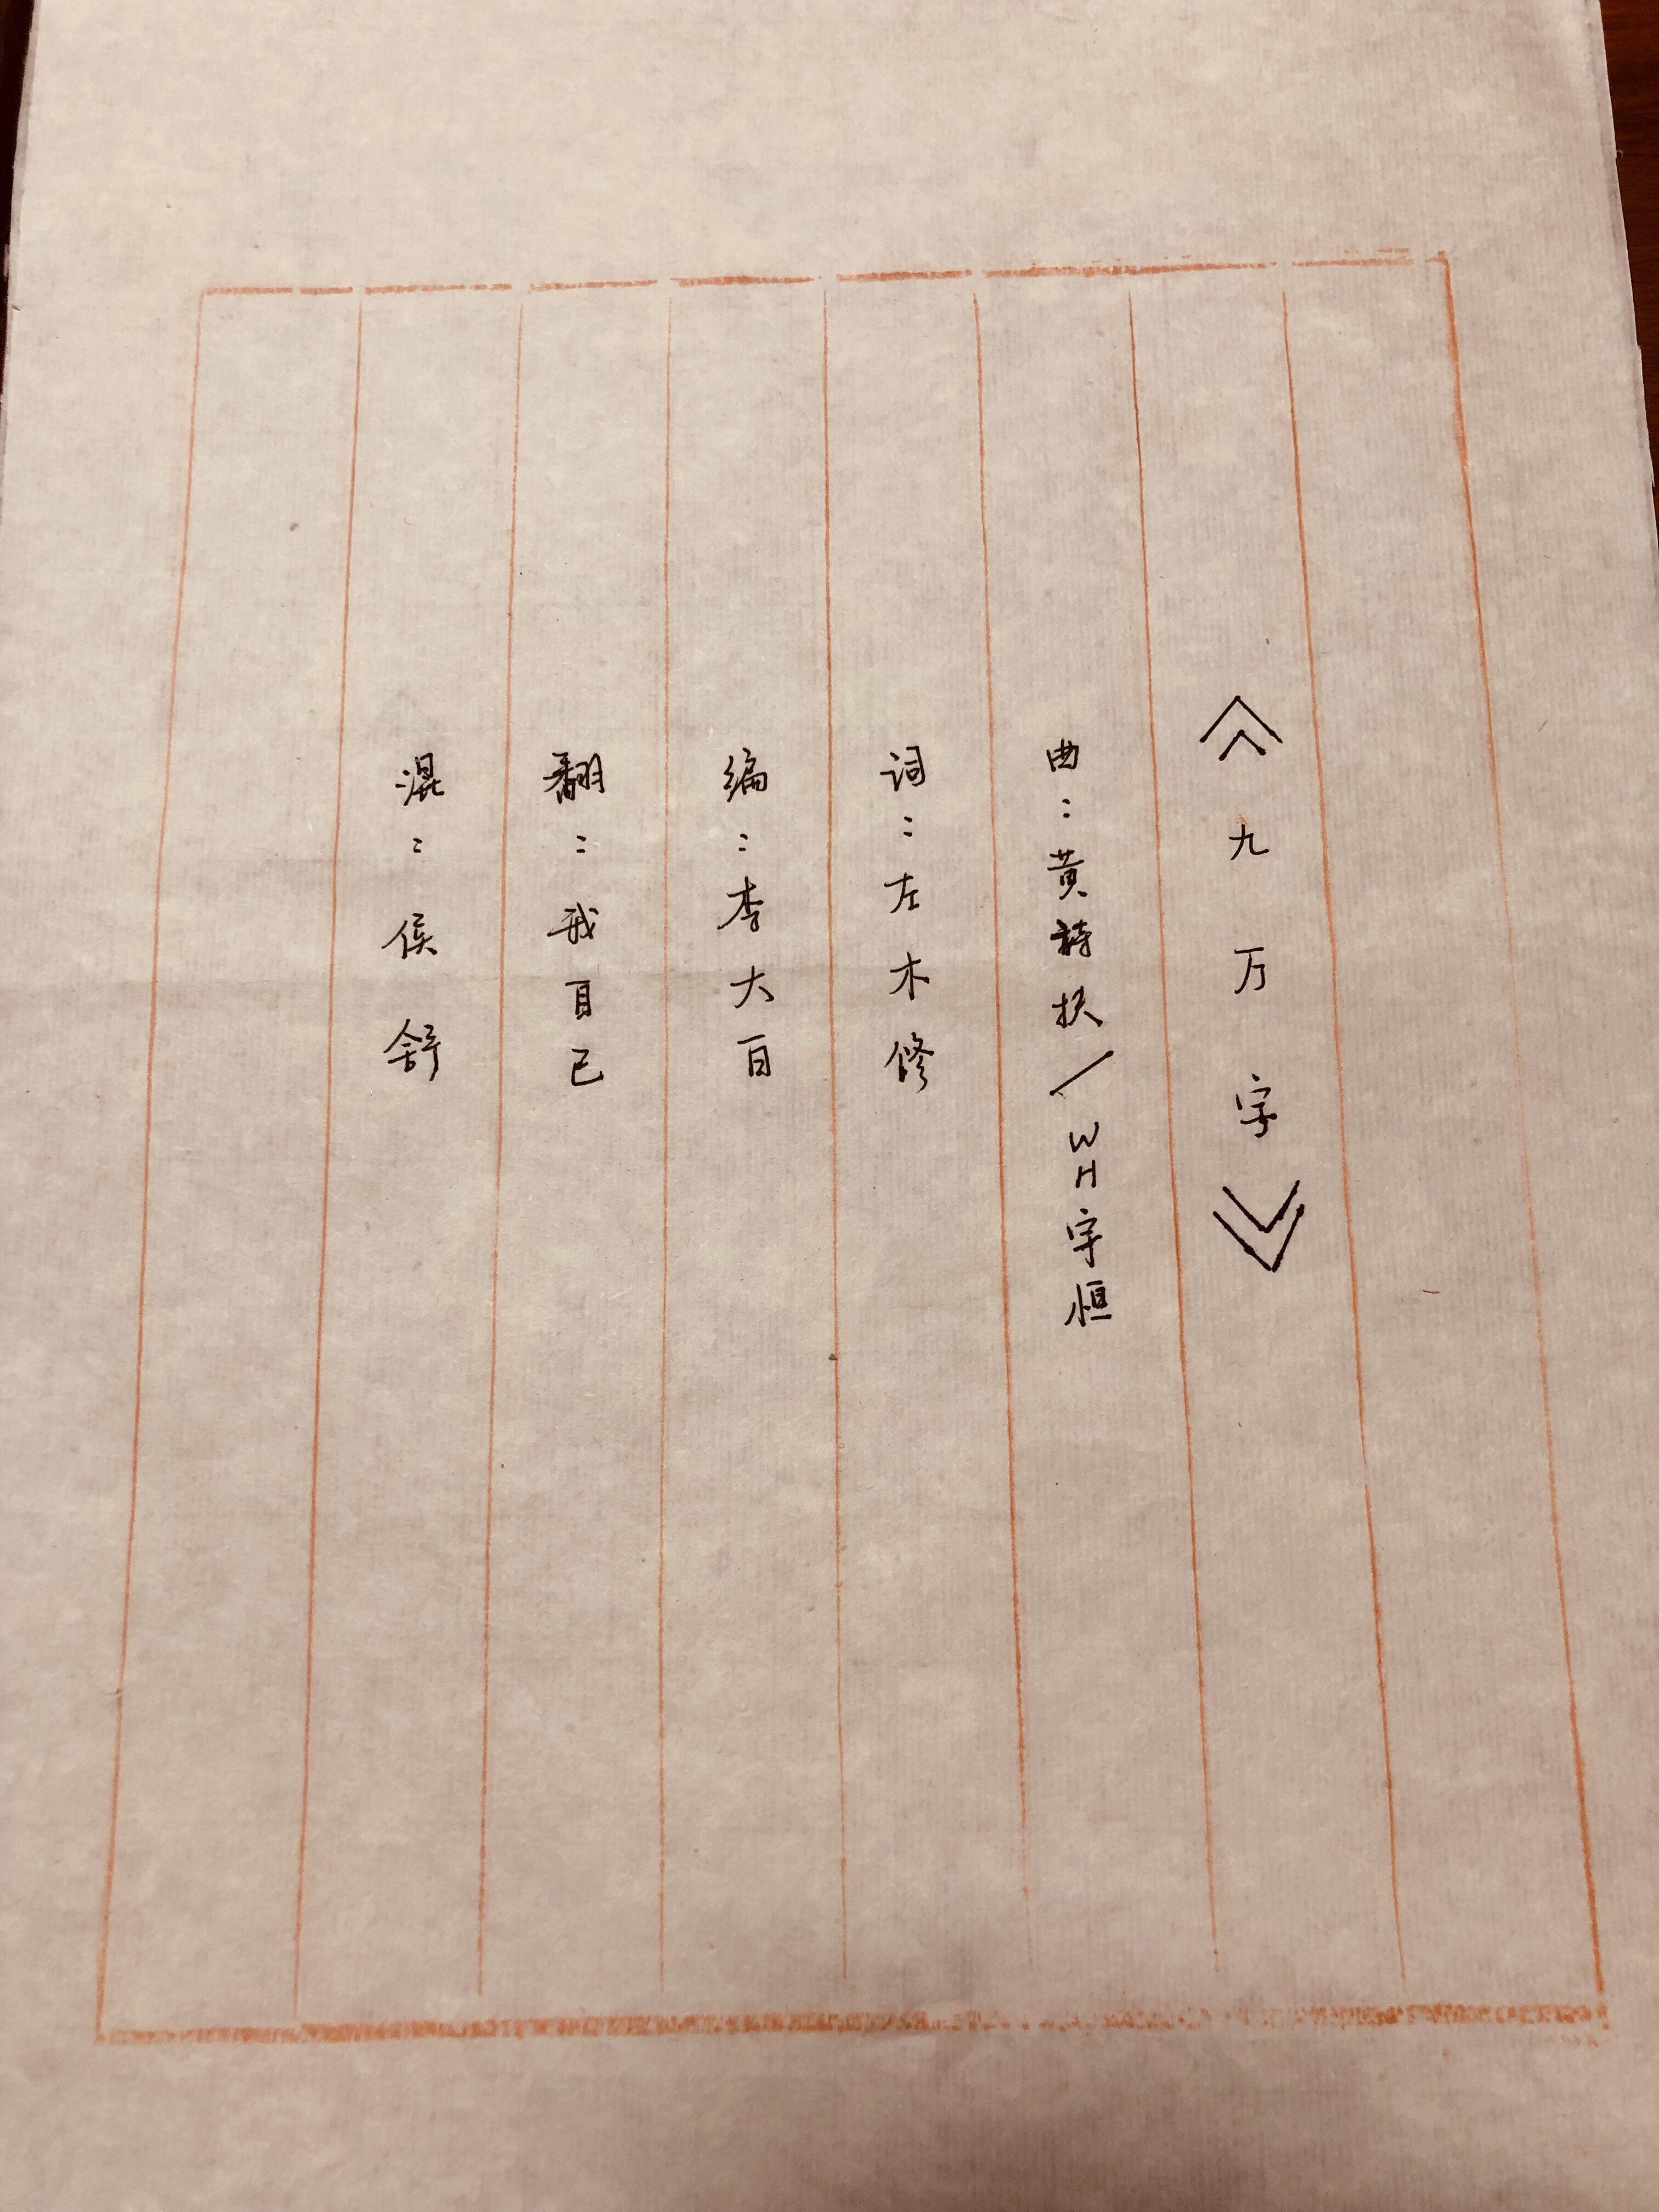 《九万字》
曲：黄诗扶/WH宇恒
词：左木修
编：李大白
翻：我自己
混：侯舒